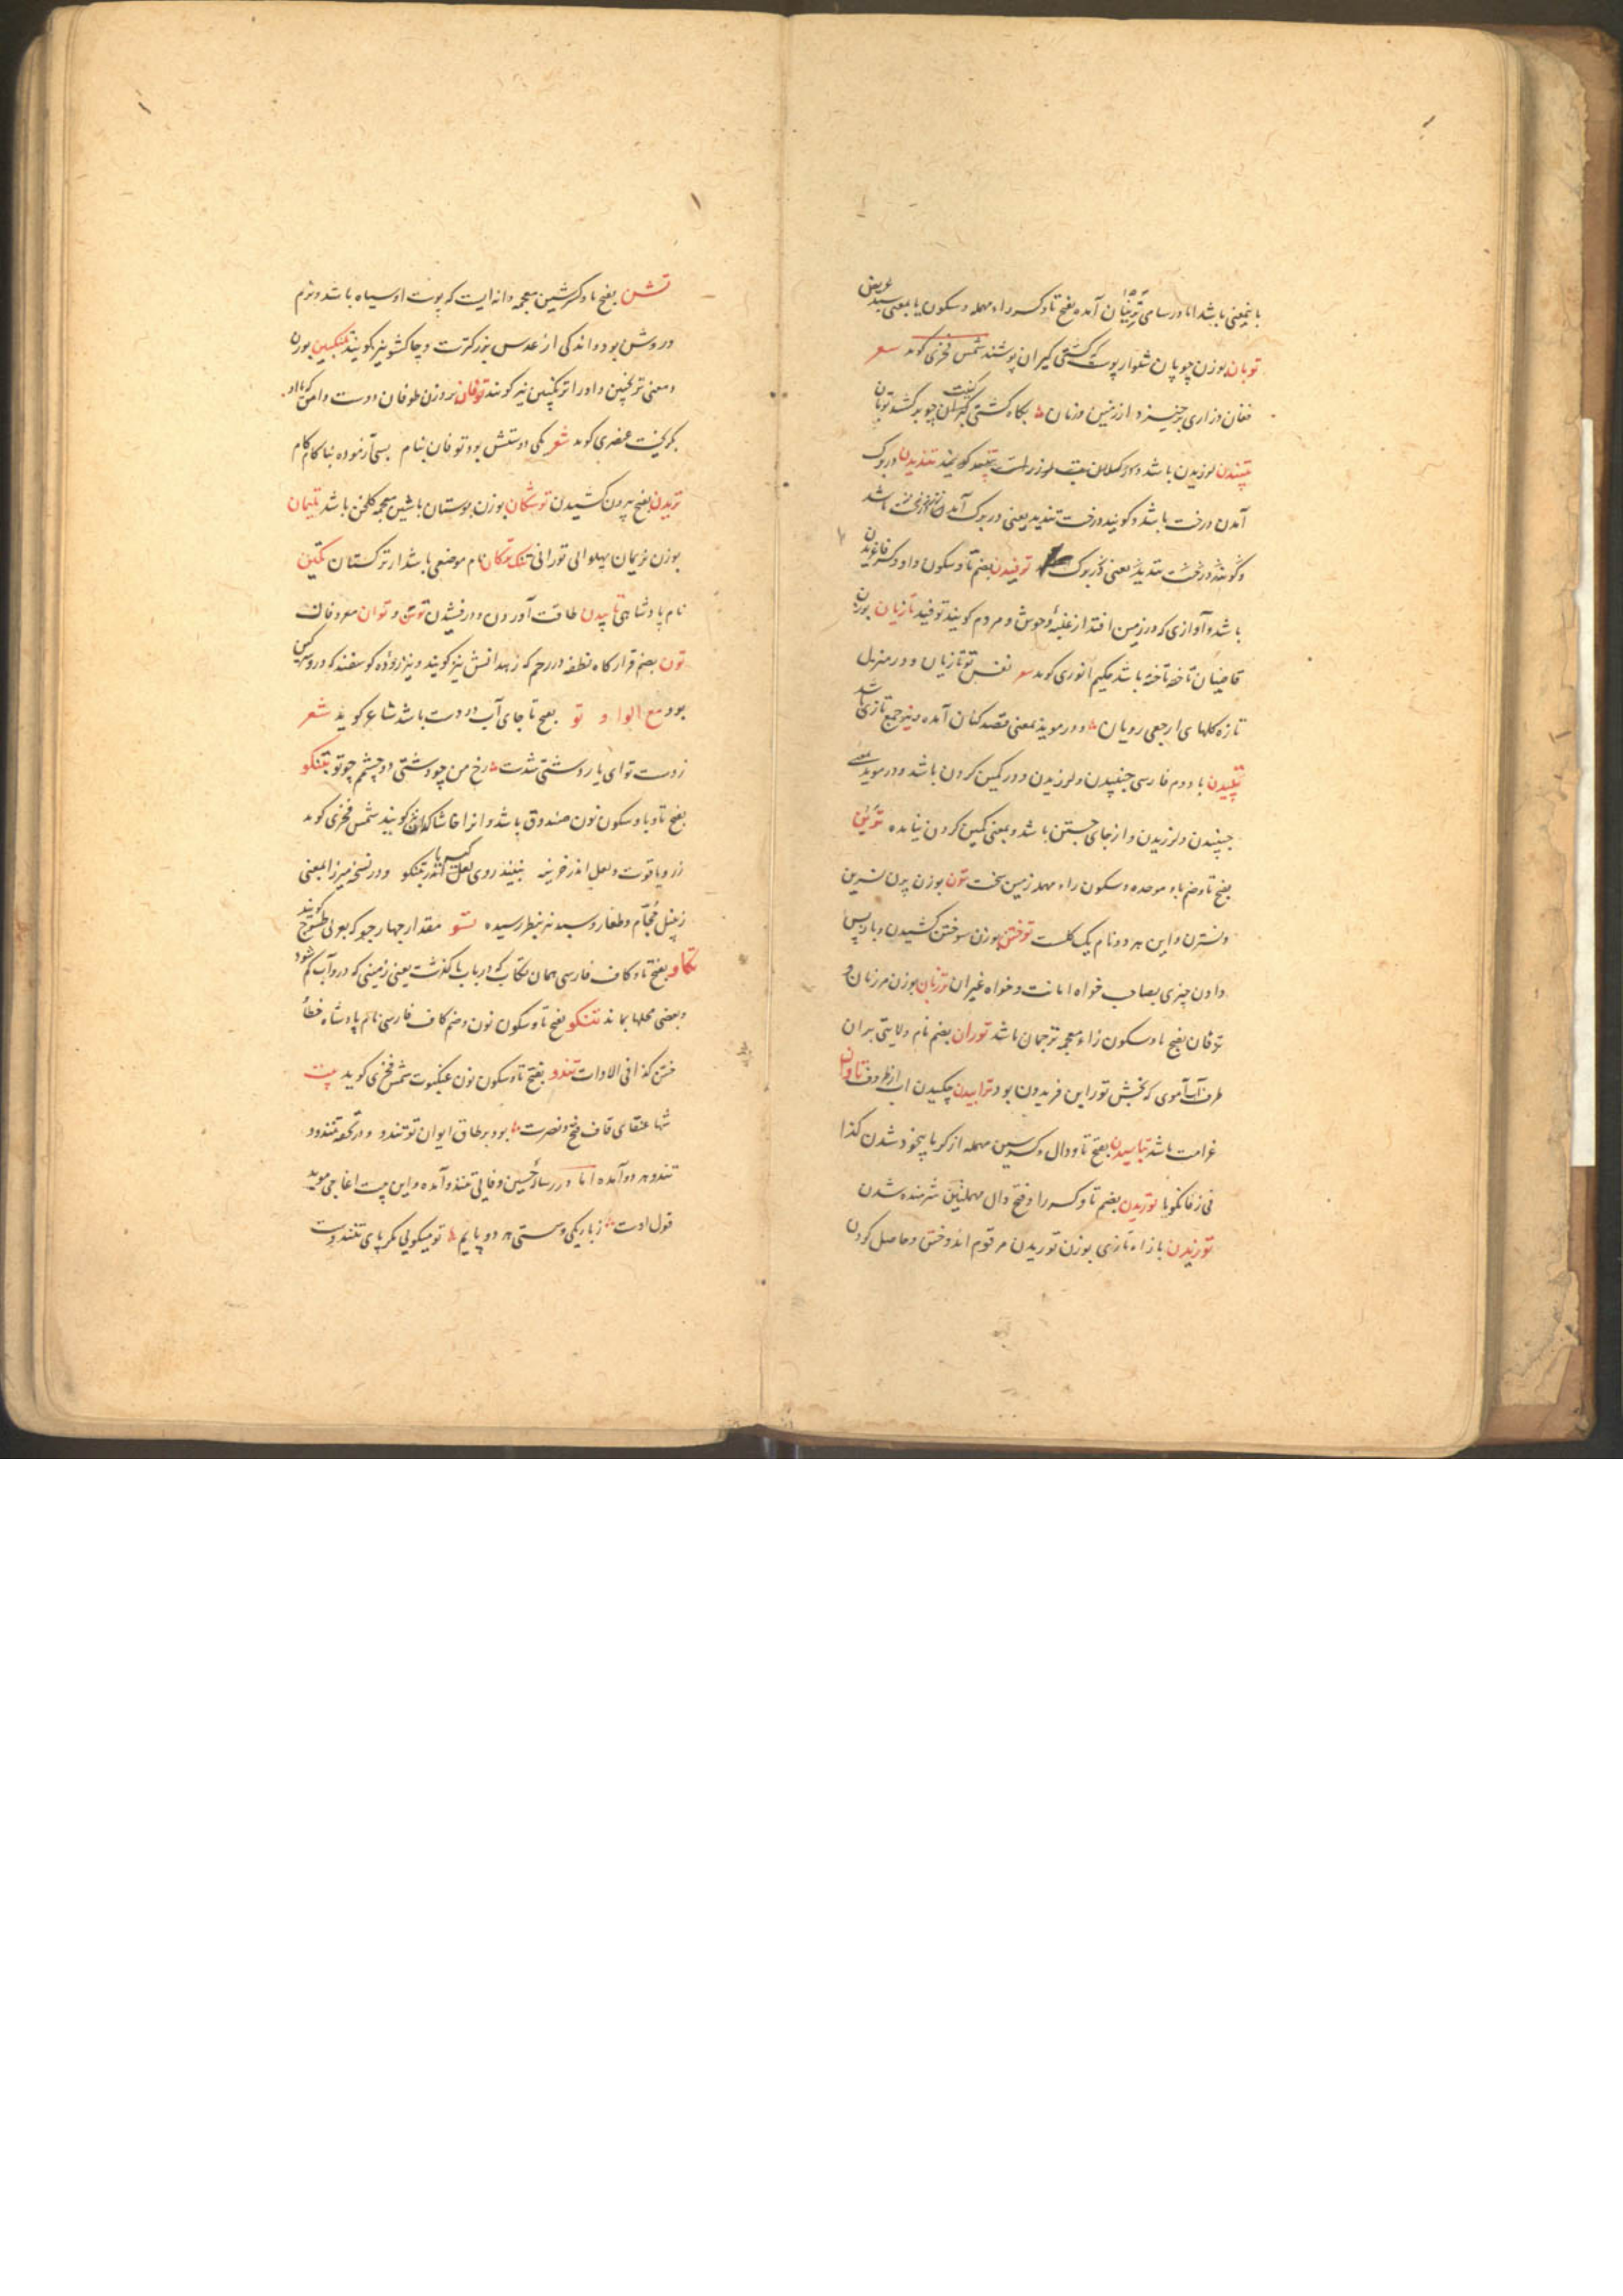 باینمعنی باشد اما در سامی ترنیان آمده بفتح تا و کسر راء مهمله و سکون یا بمعنی سبد عریض
توبان بوزن چوپان شلوار پوست که کشتی گیران پوشند شمس فخری کوید شعر
فغان و زاری برخیزد از زمین و زمان بکاه کشتی کیران چو برکشد توبان
تپیدن لرزیدن باشد تندیدن در برک
آمدن درخت باشد و کویند درخت تندید یعنی در برک آمدن
و کویند درخت تندید یعنی در برک توفیدن بضم تا و سکون واو و کسر فا غریدن
باشد و آوازی که در زمین افتد از غلبهٔ وحوش و مردم کویند توفید تازیان بوزن
قاضیان تاخته تاخته باشد حکیم انوری کوید شعر نفس تو تازیان و در منزل
تازه کلهای ارجعی رویان و در موید بمعنی قصد کنان آمده و نیز جمع تازی باشد
تپیدن با دوم فارسی جنبیدن و لرزیدن و در کمین کردن باشد و در موید بمعنی
جنبیدن و لرزیدن و از جای جستن باشد و بمعنی کمین کردن نیامده
بفتح تا و ضم باء موحده و سکون راء مهمله زمین سخت تون بوزن پرن نسرین
و نسترن و این هر دو نام یک کلست توختن بوزن سوختن کشیدن و باز پس
دادن چیزی بصاحب خواه امانت و خواه غیر آن ترزبان بوزن مرزبان و
ترفان بفتح تا و سکون زاء معجمه ترجمان باشد توران بضم نام ولایتی بر آن
طرف آب آموی که بخش تور ابن فریدون بود ترابیدن چکیدن آب از ظروف تاوان
غرامت باشد تباسیدن بفتح تا و دال و کسر سین مهمله از کرما بیخود شدن کذا
فی زفانکویا توریدن بضم تا و کسر را و فتح دال مهملتین شرمنده شدن
توزیدن با زاء تازی بوزن توریدن مرقوم اندوختن و حاصل کردن
تشن بفتح تا و کسر شین معجمه دانه‌ایست که پوست او سیاه باشد و نرم
در وشن بود و اندکی از عدس بزرکترست و چاکشو نیز کویند تنکبین بوزن
و معنی ترنجبین و او را ترنکبین نیز کویند توفان بر وزن طوفان دوست وامق که با او
بکریخت عنصری کوید شعر یکی دوستش بود توفان بنام بسی آزموده بناکام کام
تریدن بفتح بیرون کشیدن توشکان بوزن بوستان با شین معجمه کلخن باشد تلیمان
بوزن نریمان پهلوانی تورانی نام موضعی باشد از ترکستان تکین
نام پادشاهی تابیدن طاقت آوردن و درفشیدن توش و توان معروفان
تون بضم قرارکاه نطفه در رحم که زهدانش نیز کویند و نیز رودهٔ کوسفند که درو سرکین
بود مع الواو تو بفتح تا جای آب در دست باشد شاعر کوید شعر
زدست تو ای یار دوستی شدت رخ من چو دشتی دو چشم چو تو تبنکو
بفتح تا و با و سکون نون صندوق باشد و انرا خاشاکدان نیز کویند شمس فخری کوید
زر و یاقوت و لعل اندر خزینه نبیند روی لعل اندر تبنکو و در نسخهٔ میرزا بمعنی
زنبیل حجام و طغار و سبد نیز بنظر رسیده تسو مقدار چهار جو که بعربی طسوج کویند
تکاو بفتح تا و کاف فارسی همان تکاب که در باب با کذشت یعنی زمینی که درو آب کم شود
و بعضی محلها بماند تنکو بفتح تا و سکون نون و ضم کاف فارسی نام پادشاه خطا
ختن کذا فی الادات تندو بفتح تا و سکون نون عنکبوت شمس فخری کوید بیت
شها عنقای قاف فتح و نصرت بود بر طاق ایوان تو تندو و در تحفه تنندو
تندو هر دو آمده اما در رسالهٔ حسین وفایی تنندو آمده و این بیت اغاجی موید
قول اوست ز باریکی و سستی هر دو پایم تو میکویی مکر پای تنندوست